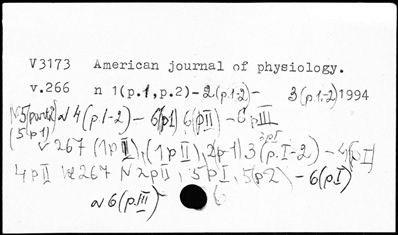 V3173 American journal of physiology.
v.266 n 1(p.1,p.2)-2(p.1-2)- 3(p.1-2)1994
N5(part2) N 4(p.1-2) - 6(p1) 6(pII) - 6 pIII
(5 p1)
3pI
v 267 (1p II), (1 p II), 2(p-1) 3(p.I-2) - 4(pI)
4 p II v267 N 2pII, 5pI, 5(p2) - 6(pI)
N 6(pIII) 6